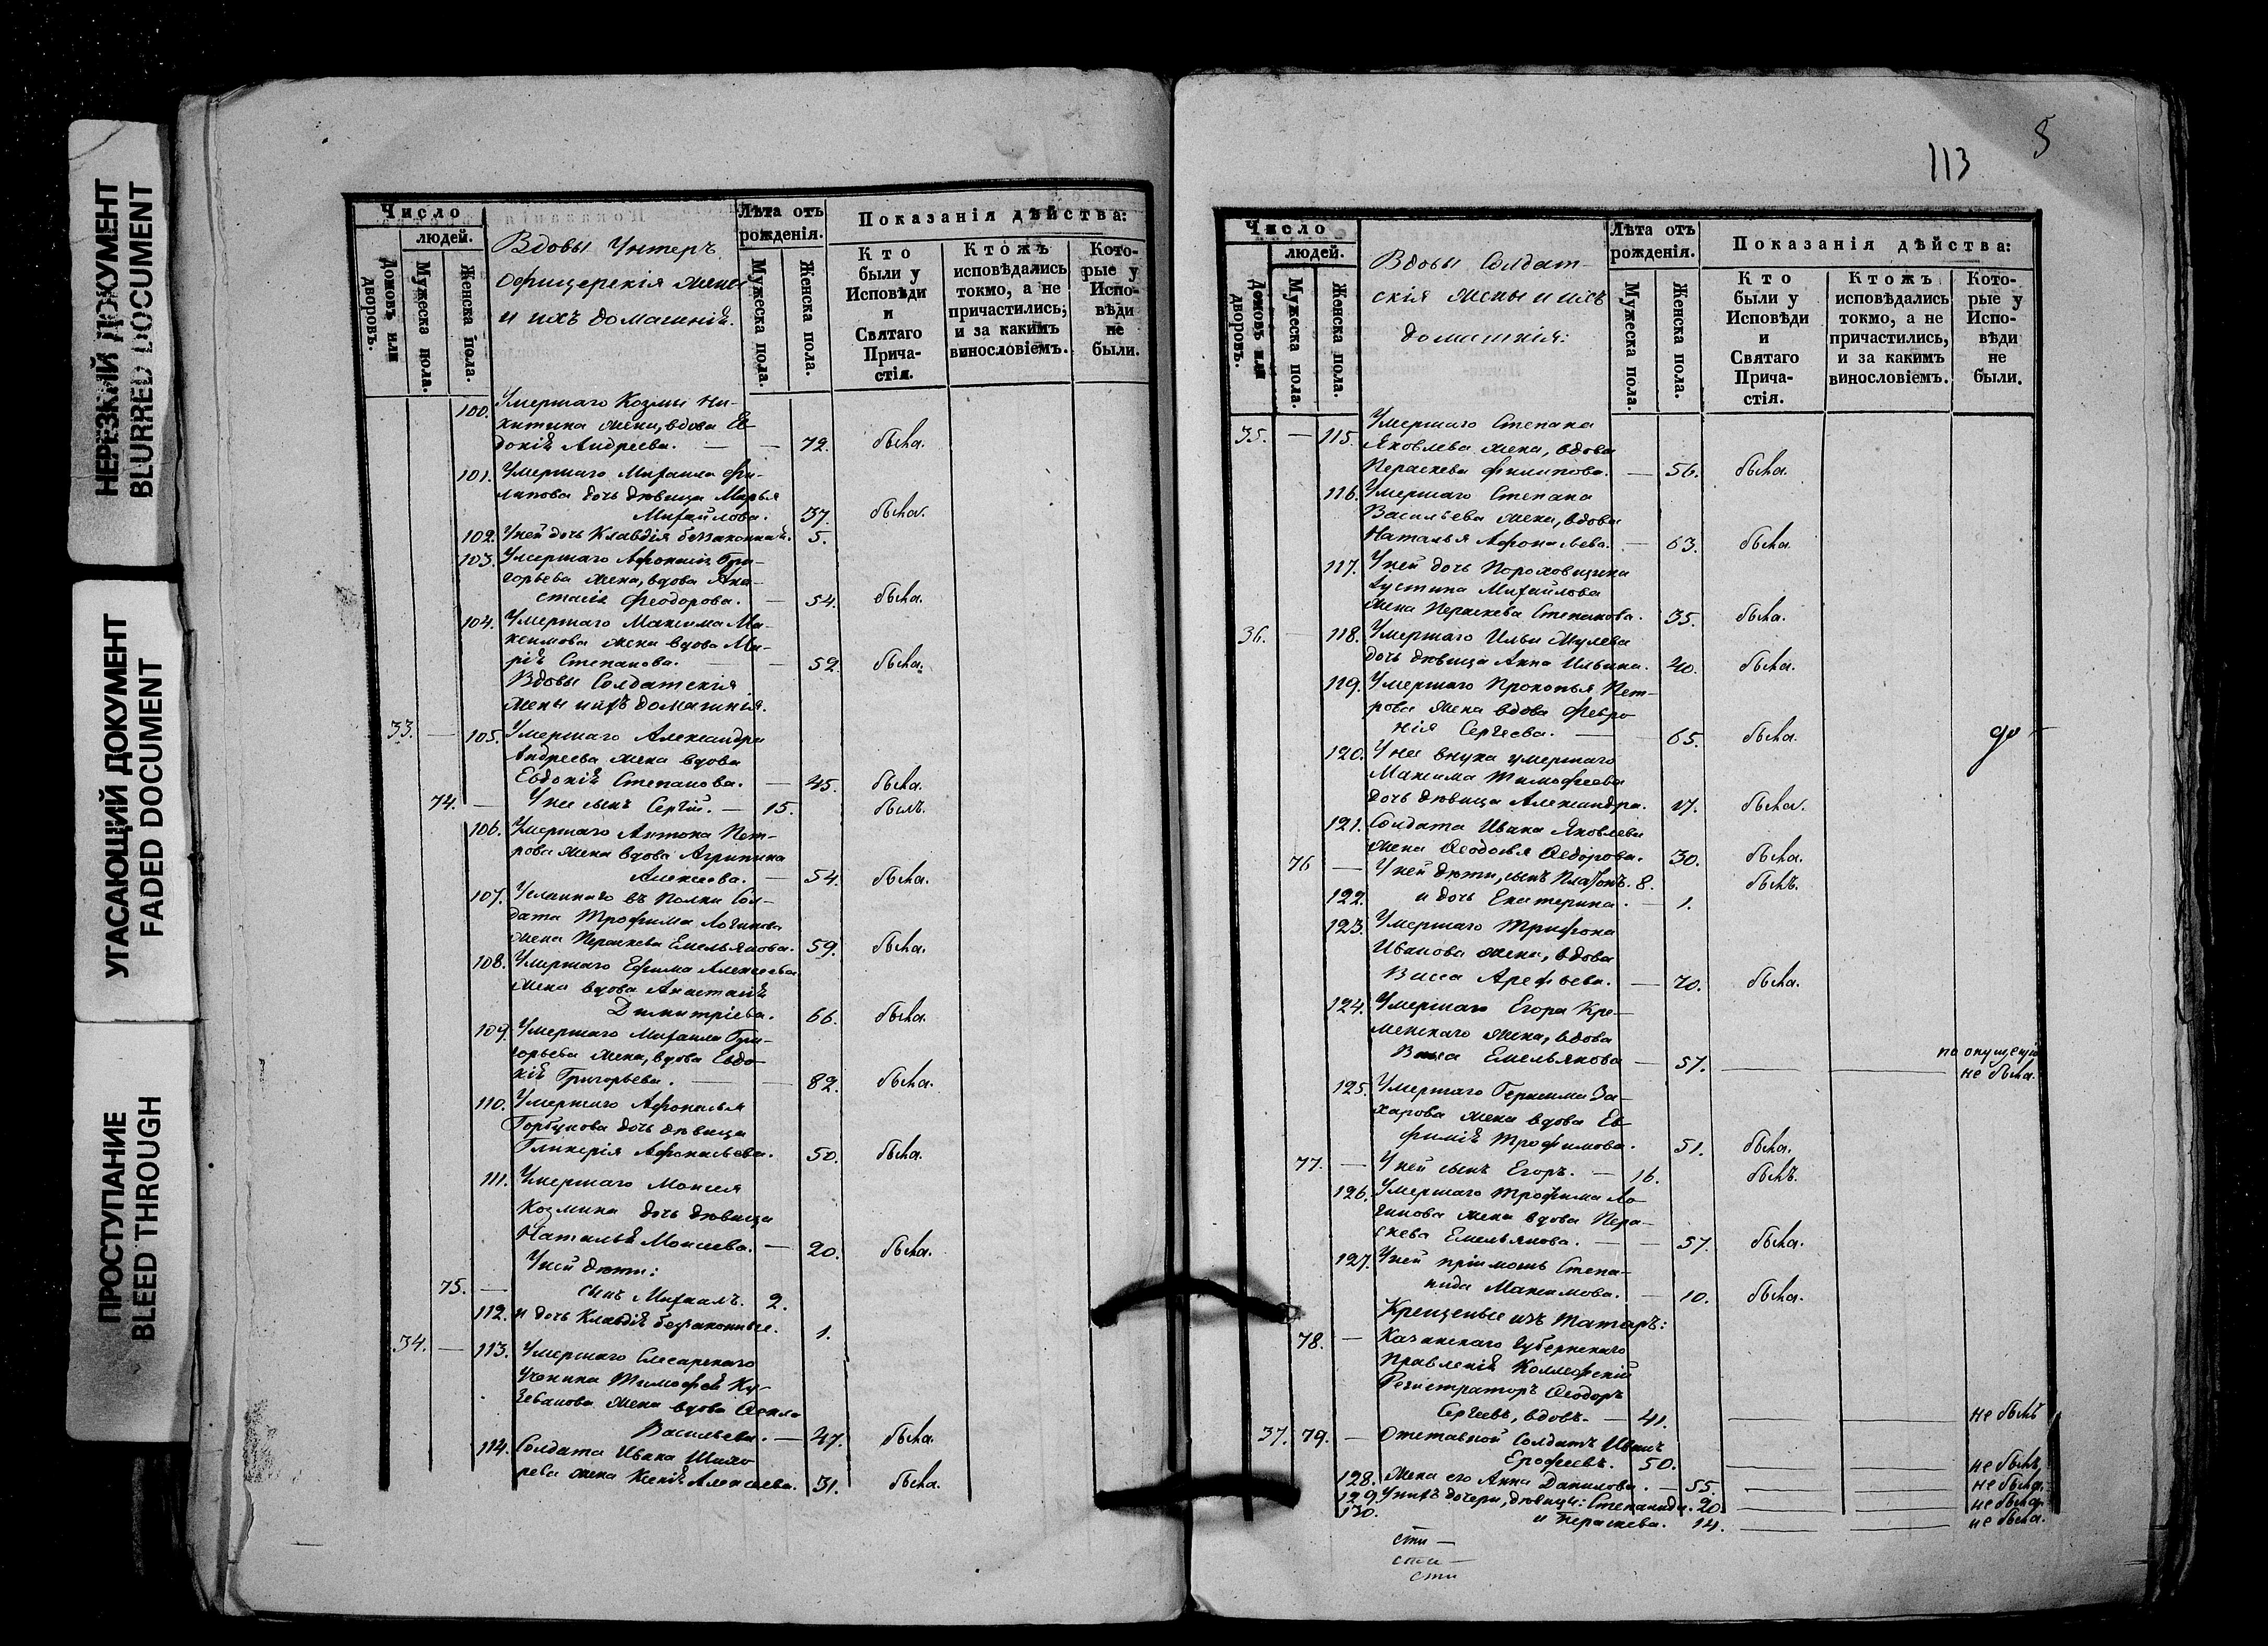 НЕРЕЗКИЙ ДОКУМЕНТ
BLURRED DOCUMENT
УГАСАЮЩИЙ ДОКУМЕНТ
FADED DOCUMENT
ПРОСТУПАНИЕ
BLEED THROUGH
Число
людей.
Домовъ или дворовъ.
Мужеска пола.
Женска пола.
Вдовы Унтеръ
офицерскія жены
и ихъ домашнія.
Лѣта отъ рожденія.
Мужеска пола.
Женска пола.
Показанія дѣйства:
Кто были у Исповѣди и Святаго Причастія.
Ктожъ исповѣдались токмо, а не причастились, и за какимъ винословіемъ.
Которые у Исповѣди не были.
100. Умершаго Козмы Ни-
китина жена, вдова Ев
докія Андреева. — — 72. была.
101. Умершаго Михаила Фи-
липова дочь дѣвица Марья
Михайлова. 37. была.
102. У ней дочь Клавдія беззаконная. 5.
103. Умершаго Афонасія Гри-
горьева жена, вдова Ана-
стасія Феодорова. — 54. была.
104. Умершаго Максима Ма-
ксимова жена вдова Ма-
рія Степанова. — — 52. была.
Вдовы Солдатскія
жены и ихъ домашнія.
33. — 105. Умершаго Александра
Андреева жена вдова
Евдокія Степанова. — 45. была.
74. — У нее сынъ Сергій. — 15. былъ.
106. Умершаго Антона Пет-
рова жена вдова Агрипина
Алексеева. — 54. была.
107. въ Полки Сол-
дата Трофима Логинова
жена Пераскева Емельянова. 59. была.
108. Умершаго Ефима Алексеева
жена вдова Анастасія
Димитріева. 66. была.
109. Умершаго Михаила Гри-
горьева жена, вдова Евдо-
кія Григорьева. — — 82. была.
110. Умершаго Афонасья
Горбунова дочь дѣвица
Гликерія Афонасьева. 50. была.
111. Умершаго Моисея
Козмина дочь дѣвица
Наталья Моисеева. — 20. была.
У ней дѣти:
75. — сынъ Михаилъ. 2.
112. и дочь Клавдія беззаконные. 1.
34. — 113. Умершаго Слесарскаго
Ученика Тимофея Ку-
жена вдова
Васильева. — 47. была.
114. Солдата Ивана
рева жена Ксенія Алексеева. 31. была.
113
5
Число
людей.
Домовъ или дворовъ.
Мужеска пола.
Женска пола.
Вдовы Солдат-
скія жены и ихъ
домашнія:
Лѣта отъ рожденія.
Мужеска пола.
Женска пола.
Показанія дѣйства:
Кто были у Исповѣди и Святаго Причастія.
Ктожъ исповѣдались токмо, а не причастились, и за какимъ винословіемъ.
Которые у Исповѣди не были.
35. — 115. Умершаго Степана
Яковлева жена, вдова
Пераскева Филипова. — 56. была.
116. Умершаго Степана
Васильева жена, вдова
Наталья Афонасьева. — 63. была.
117. У ней дочь Пороховщика
Густина Михайлова
жена Пераскева Степанова. 35. была.
36. — 118. Умершаго Ильи
дочь дѣвица Анна Ильина. 40. была.
119. Умершаго Прокопья Пет-
рова жена вдова Февро
нія Сергеева. — 65. была.
120. У нее внука умершаго
Максима Тимофеева
дочь дѣвица Александра. 17. была.
121. Солдата Ивана Яковлева
жена Ѳеодосья Ѳедорова. 30. была.
76 — У ней дѣти, сынъ Платонъ. 8. былъ.
122. и дочь Екатерина. — 1.
123. Умершаго Трифона
Иванова жена, вдова
Васса Арефьева. — 70. была.
124. Умершаго Егора Кре-
менскаго жена, вдова
Васса Емельянова — 57. — — по опущенію
не была.
125. Умершаго Герасима За-
харова жена вдова Ев
фимія Трофимова. 51. была.
77. — У ней сынъ Егоръ. — 16. былъ.
126. Умершаго Трофима Ло-
гинова жена вдова Пера-
скева Емельянова. — — 57. была.
127. У ней пріимышъ Степа-
нида Максимова. — 10. была.
Крещеные изъ Татаръ:
78. — Казанскаго Губернскаго
Правленія Коллежскій
Регистраторъ Ѳеодоръ
Сергеевъ, вдовъ. — 41. — — не былъ
37. 79. — Отставной Солдатъ Иванъ
Ерофеевъ. 50. — — не былъ,
128. Жена его Анна Данилова. — 55. — — не была.
129. У нихъ дочери, дѣвицы: Степанида. 20. — — не была.
130. и Пераскева. 14. — — не была.
сти —
сти —
сти